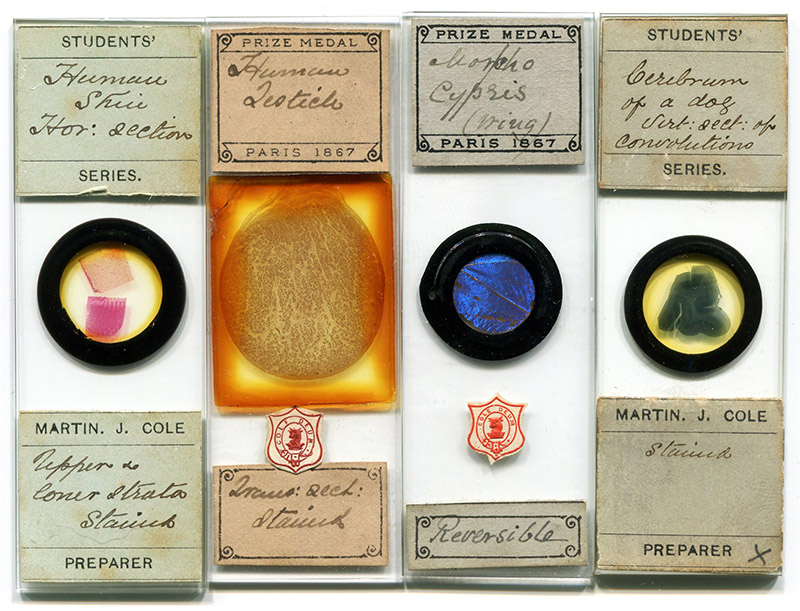 STUDENTS'
Human
Skin
Hor: section
SERIES.
MARTIN. J. COLE
Upper &
lower strata
Stained
PREPARER
PRIZE MEDAL
Human
Testicle
PARIS 1867
COLE DEUM
Trans: sect:
Stained
PRIZE MEDAL
Morpho
Cypris
(wing)
PARIS 1867
COLE DEUM
Reversible
STUDENTS'
Cerebrum
of a dog
Vert: sect: of
convolutions
SERIES.
MARTIN. J. COLE
Stained
PREPARER X